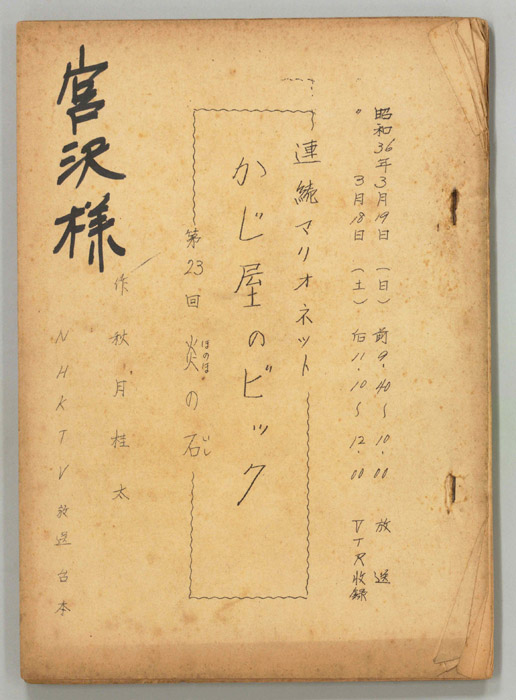 昭和36年3月19日（日）前9.40～10.00 放送
〃 3月18日（土）后11.10～12.00 VTR収録
連続マリオネット
かじ屋のビック
第23回 炎の石
ほのほ いし
作 秋月桂太
NHKTV放送台本
宮沢様